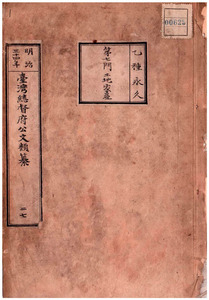 00625
乙種永久
第七門 土地家屋
明治三十四年
臺灣總督府公文類纂
二七